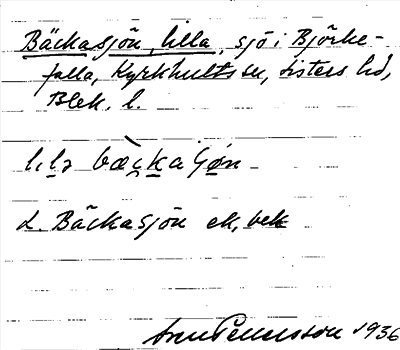 Bäckasjön, lilla, sjö i Björke-
falla, Kyrkhults sn, Listers hd,
Blek. l.
lịlạ bæcka ʃøn
L. Bäckasjön ek, bek
1936